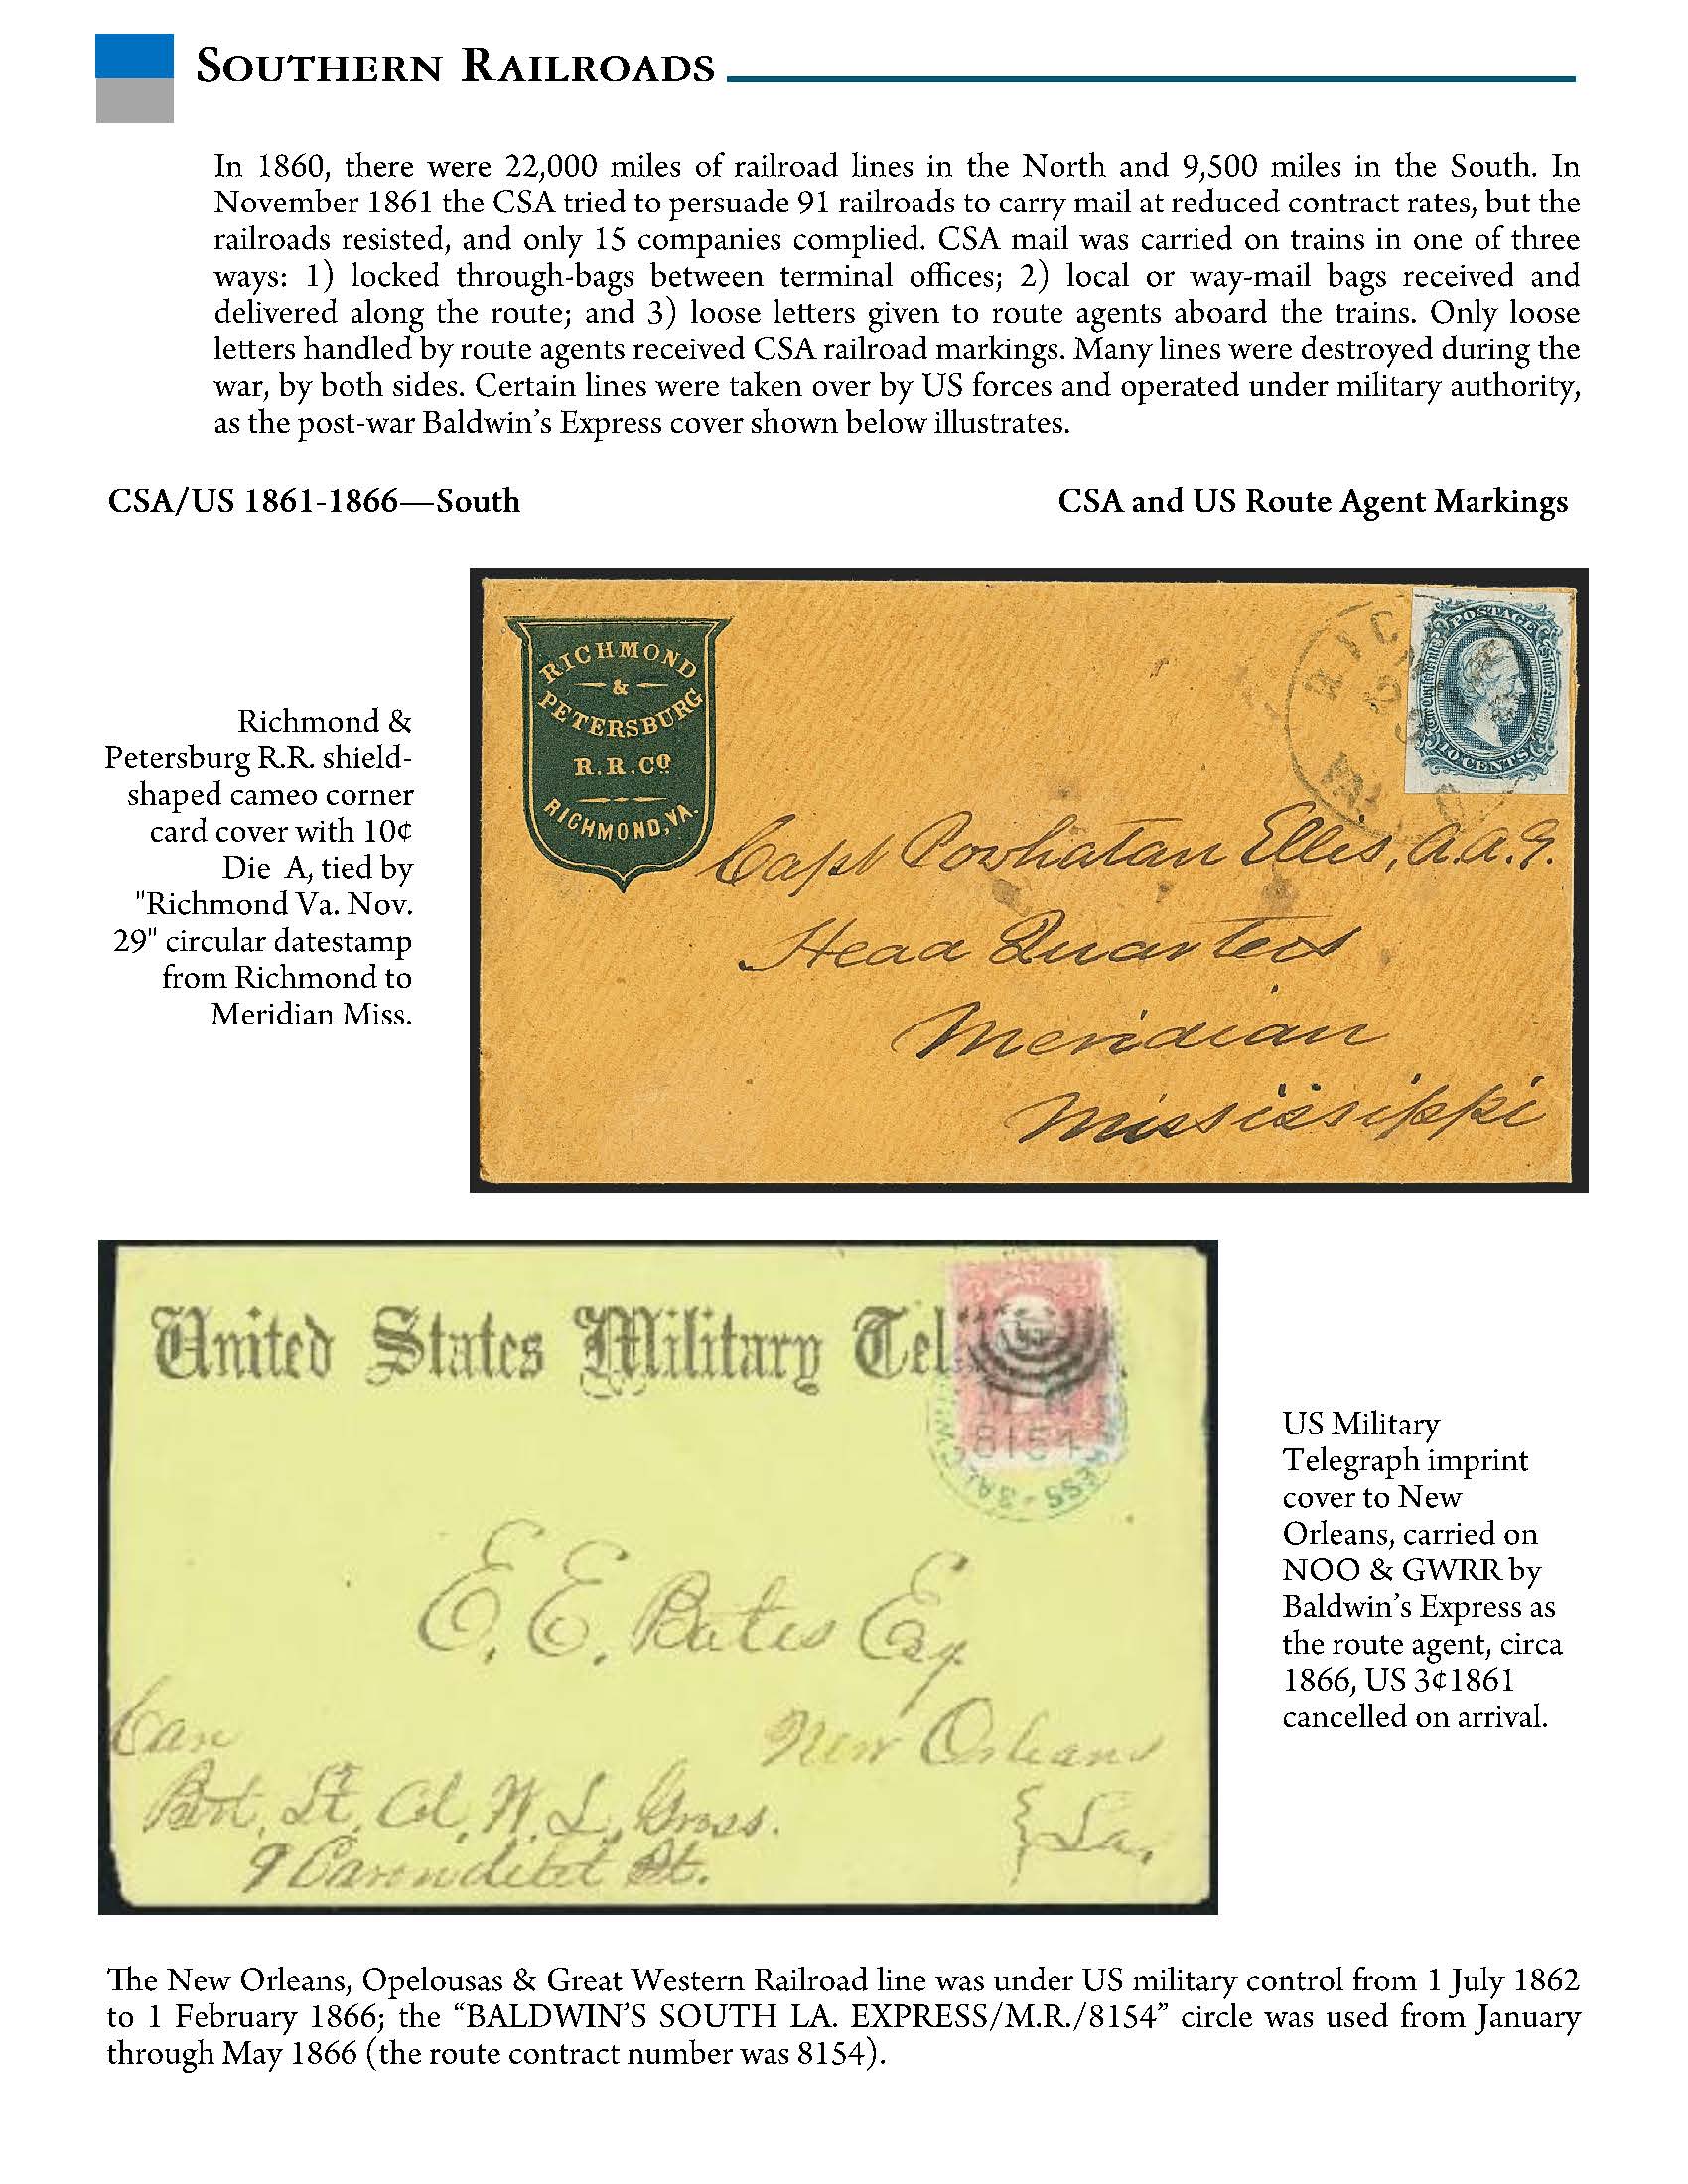 SOUTHERN RAILROADS
In 1860, there were 22,000 miles of railroad lines in the North and 9,500 miles in the South. In
November 1861 the CSA tried to persuade 91 railroads to carry mail at reduced contract rates, but the
railroads resisted, and only 15 companies complied. CSA mail was carried on trains in one of three
ways: 1) locked through-bags between terminal offices; 2) local or way-mail bags received and
delivered along the route; and 3) loose letters given to route agents aboard the trains. Only loose
letters handled by route agents received CSA railroad markings. Many lines were destroyed during the
war, by both sides. Certain lines were taken over by US forces and operated under military authority,
as the post-war Baldwin's Express cover shown below illustrates.
CSA/US 1861-1866—South
CSA and US Route Agent Markings
Richmond &
Petersburg R.R. shield-
shaped cameo corner
card cover with 10¢
Die A, tied by
"Richmond Va. Nov.
29" circular datestamp
from Richmond to
Meridian Miss.
RICHMOND
&
PETERSBURG
R.R.CO
RICHMOND, VA.
POSTAGE
10 CENTS
RIC
VA
Capt Powhatan Ellis, A.A.G.
Head Quarters
Meridian
Mississippi
United States Military Tel
8154
E. E. Bates Esq
New Orleans
La,
Care
Bvt. Lt. Col. W. L. Gross.
9 Carondelet St.
US Military
Telegraph imprint
cover to New
Orleans, carried on
NOO & GWRR by
Baldwin's Express as
the route agent, circa
1866, US 3¢1861
cancelled on arrival.
The New Orleans, Opelousas & Great Western Railroad line was under US military control from 1 July 1862
to 1 February 1866; the “BALDWIN'S SOUTH LA. EXPRESS/M.R./8154” circle was used from January
through May 1866 (the route contract number was 8154).